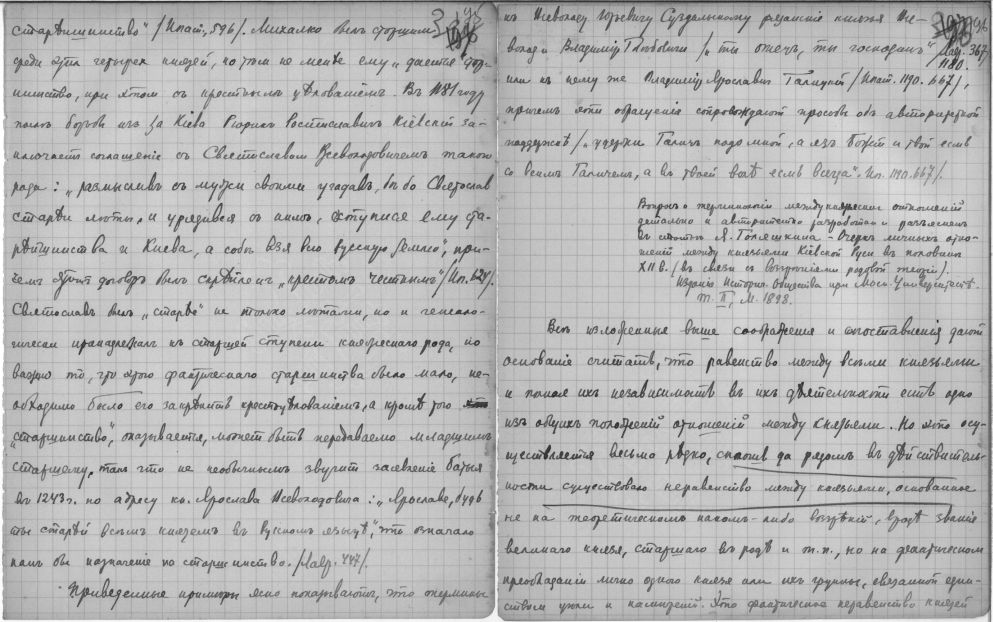 старѣйшинство" /Ипат., 596/. Михалко былъ старшимъ
среди этихъ четырех князей, но тѣм не менѣе ему „дается стар-
шинство, при этом съ крестнымъ цѣлованіемъ. Въ 1181 году
послѣ борьбы изъ за Кіева Рюрик Ростиславичъ Кіевскій за-
ключаетъ соглашеніе съ Святославом Всеволодовичем такого
рода: „размысливъ съ мужи своими угадавъ, бѣ бо Святослав
старѣй лѣты, и урядився съ нимъ, съступися ему ста-
рѣйшинства и Киева, а собѣ взя всю русскую землю", при-
чем этотъ договоръ былъ скрѣпленъ „крестомъ честнымъ" /Ип. 624/.
Святославъ былъ „старѣе" не только лѣтами, но и генеало-
гически принадлежалъ къ старшей ступени княжескаго рода, но
важно то, что этого фактическаго старшинства было мало, не-
обходимо было его закрѣпить крестоцѣлованіемъ, а кромѣ того
„старшинство", оказывается, можетъ быть передаваемо младшимъ
старшему, такъ что не необычнымъ звучит заявленіе Батыя
въ 1243 г. по адресу кн. Ярослава Всеволодовича: „Ярославе, буди
ты старѣй всѣмъ княземъ въ русском языцѣ", что означало
какъ бы назначеніе на старшинство. /Лавр. 447/.
Приведенные примѣры ясно показываютъ, что термины
къ Всеволоду Юрьевичу Суздальскому рязанскіе князья Все-
волод и Владиміръ Глѣбовичи /„ты отецъ, ты господинъ" Лавр. 367
1180.
или къ нему же Владиміръ Ярославич Галицкій /Ипат. 1190. 667/,
причемъ эти обращенія сопровождают просьбы объ авторитетной
поддержкѣ /„удержи Галичъ подо мной, а язъ Божій и твой есмь
со всимъ Галичемъ, а въ твоей волѣ есмь всегда". Ип. 1190. 667/.
Вопросъ о терминологіи междукняжескихъ отношеній
детально и авторитетно разработан и разъясненъ
въ статьѣ Я. Голяшкина – Очеркъ личныхъ отно-
шеній между князьями Кіевской Руси въ половинѣ
XII в. (въ связи съ воззрѣніями родовой теоріи).
Изданіе Историч. Общества при Моск. Университетѣ.
т. II, М. 1898.
Всѣ изложенные выше соображенія и сопоставленія даютъ
основаніе считать, что равенство между всѣми князьями
и полная ихъ независимость въ ихъ дѣятельности есть одно
изъ общихъ положеній отношеній между князьями. Но это осу-
ществляется весьма рѣдко, сплошь да рядомъ въ дѣйствитель-
ности существовало неравенство между князьями, основанное
не на теоретическомъ каком-либо воззрѣніи, вродѣ званіе
великаго князя, старшаго въ родѣ и т. п., но на фактическом
преобладаніи лично одного князя или ихъ группы, связанной един-
ствомъ цѣли и намѣреній. Это фактическое неравенство князей